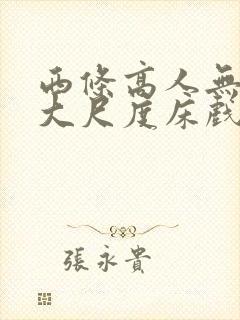 両條高人無
大尺度床戲
張永貴